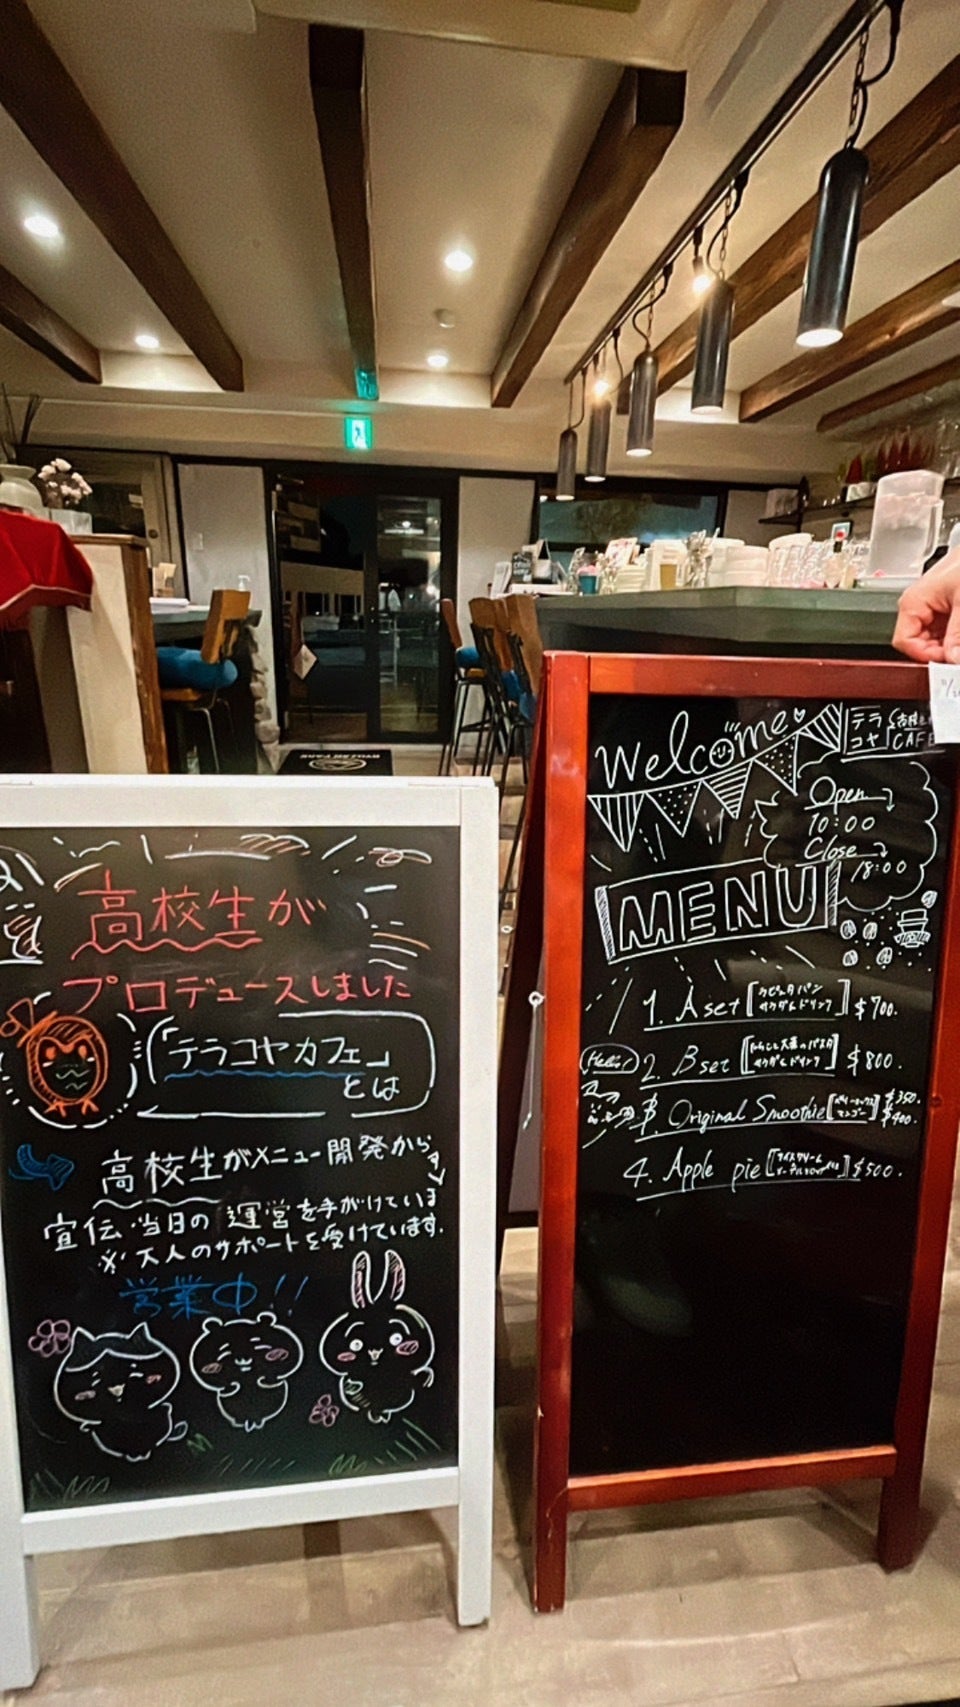 高校生が
プロデュースしました
「テラコヤカフェ」
とは
高校生がメニュー開発から
宣伝、当日の運営を手がけていま
※大人のサポートを受けています。
営業中!!
Welcome
テラ
コヤ
CAFE
Open
10:00
Close
18:00
MENU
1. A set [ラピュタパン
サラダ&ドリンク] $700.
Hello!
2. B set [
サラダ&ドリンク] $800.
Original Smoothie [
マンゴー] $350.
$400.
4. Apple pie [アイスクリーム
] $500.